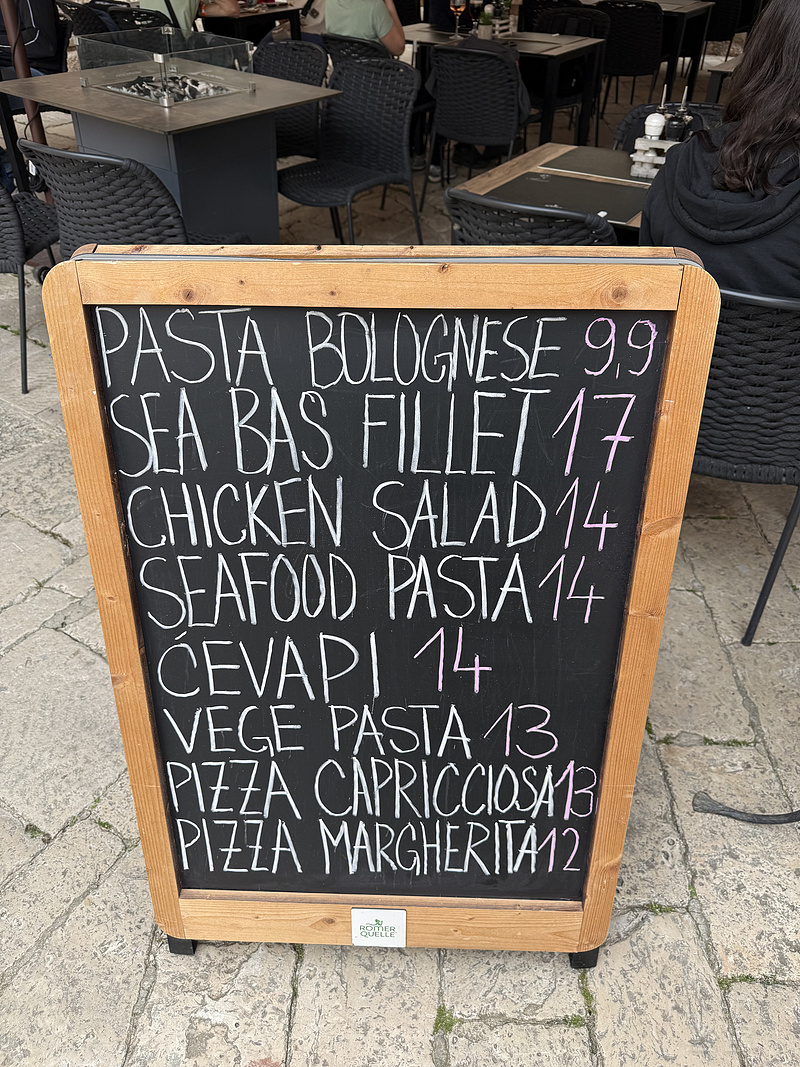 PASTA BOLOGNESE 9,9
SEA BAS FILLET 17
CHICKEN SALAD 14
SEAFOOD PASTA 14
ĆEVAPI 14
VEGE PASTA 13
PIZZA CAPRICCIOSA 13
PIZZA MARGHERITA 12
RÖMER
QUELLE